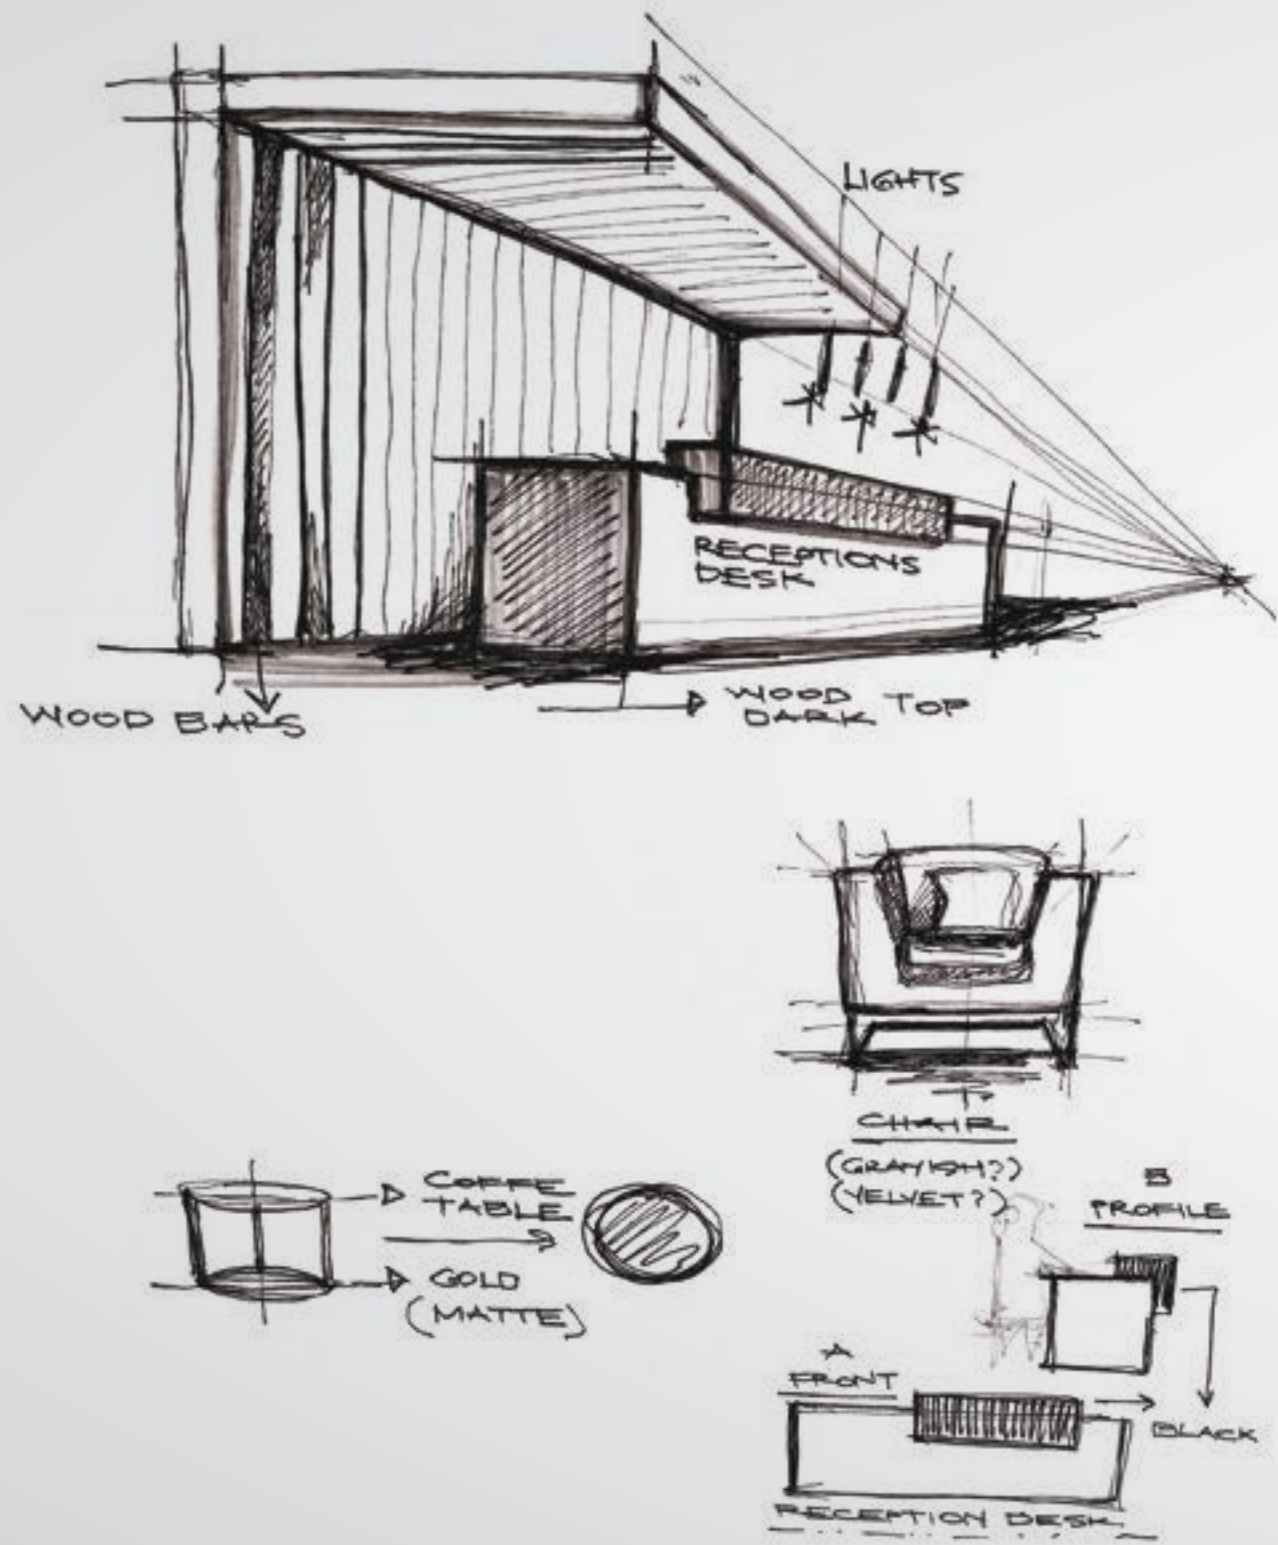 LIGHTS
RECEPTIONS
DESK
WOOD BARS
WOOD TOP
DARK
CHAIR
(GRAYISH?)
(VELVET?)
COFFE
TABLE
GOLD
(MATTE)
B
PROFILE
A
FRONT
BLACK
RECEPTION DESK